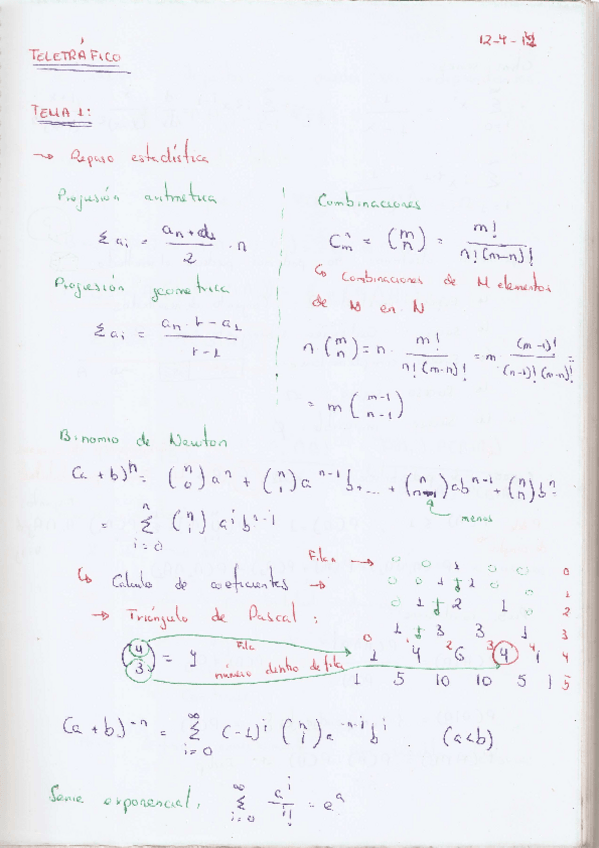 12-4-12
TELETRÁFICO
TEMA 1:
→ Repaso estadística
Progresión aritmetica
Σ ai = (an + a1)/2 · n
Progresión geometrica
Σ ai = (an · r − a1)/(r − 1)
Combinaciones
C_m^n = (m n) = m!/(n! (m−n)!)
↳ Combinaciones de M elementos
de N en N
n (m n) = n · m!/(n! (m−n)!) = m · (m−1)!/((n−1)! (m−n)!) =
= m (m−1 n−1)
Binomio de Newton
(a + b)^n = (n 0) a^n + (n 1) a^(n−1) b + ... + (n n−1) a b^(n−1) + (n n) b^n =
menos
= Σ_{i=0}^{n} (n i) a^i b^(n−i)
↳ Calculo de coeficientes →
→ Triángulo de Pascal :
Fila →
0 0 1 0 0 0
0 0 1 1 0 0 1
0 1 2 1 0 2
0 1 3 3 1 3
1 4 2 6 3 4 4 1 4
1 5 10 10 5 1 5
(4 3) = 4
Fila
número dentro de fila
(a + b)^−n = Σ_{i=0}^{∞} (−1)^i (n i) a^(−n−i) b^i . (a<b)
Serie exponencial: Σ_{i=0}^{∞} a^i/i! = e^a